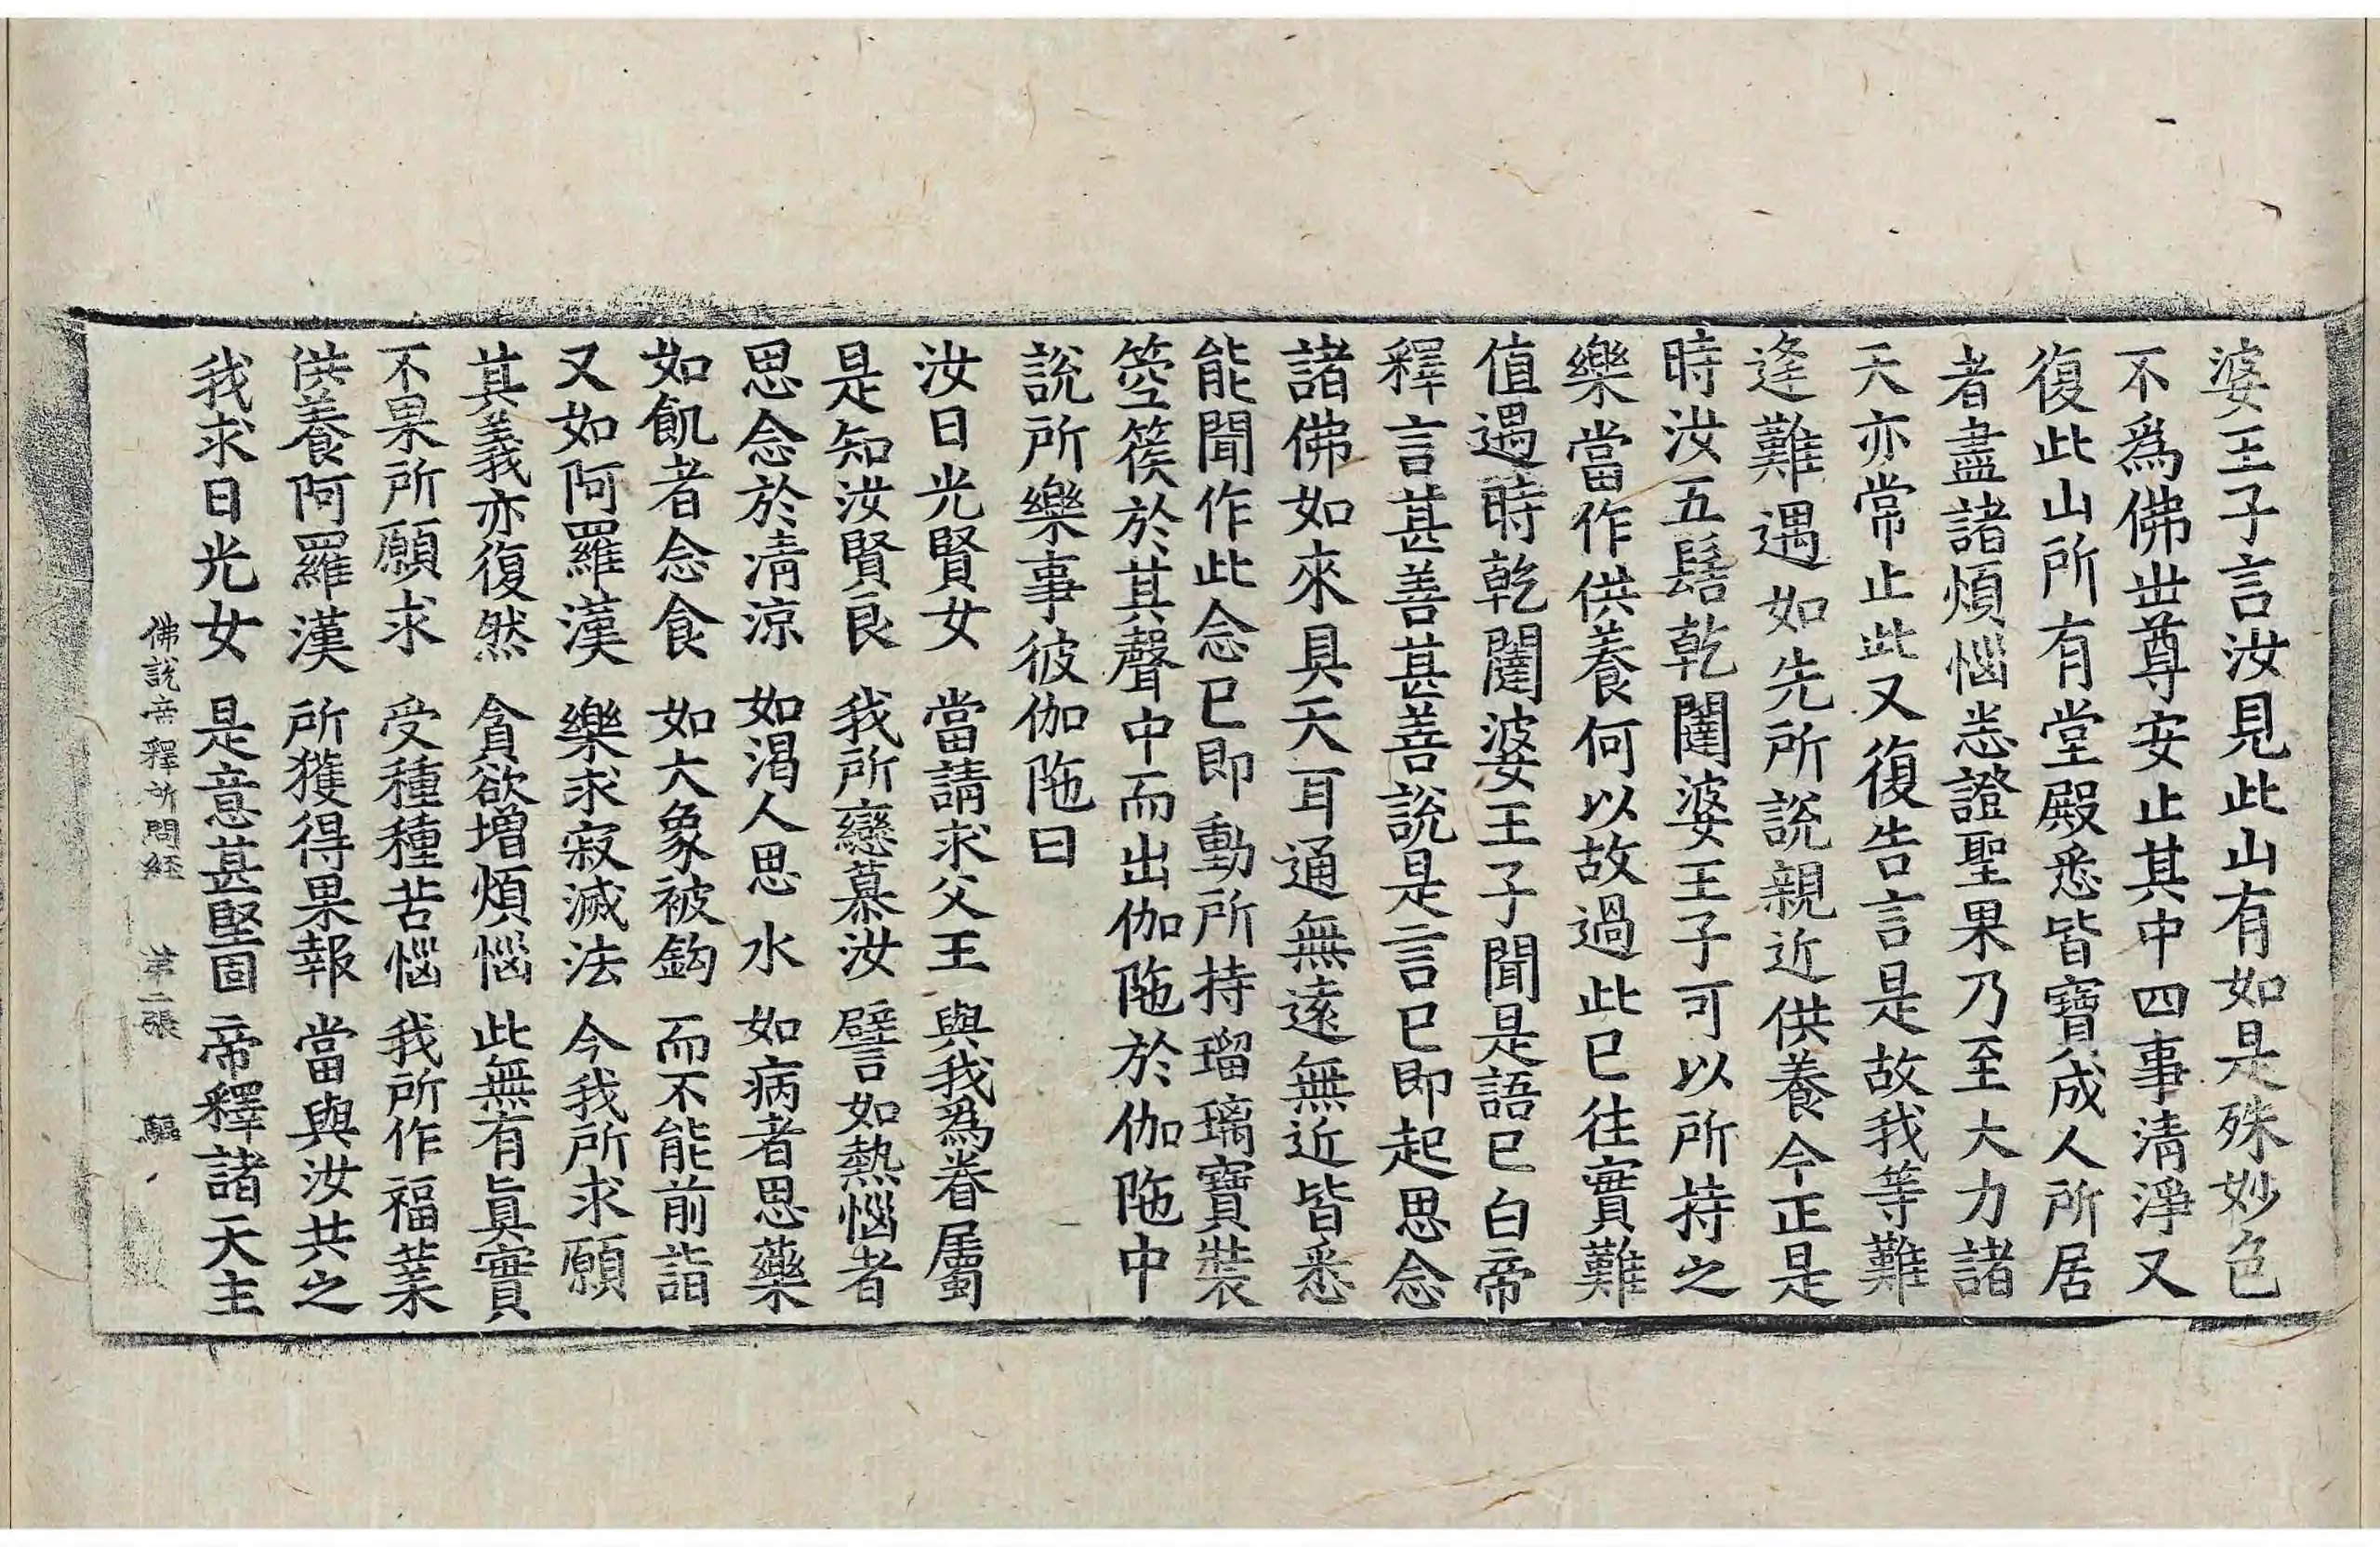 婆王子言汝見此山有如是殊妙色
不爲佛世尊安止其中四事清淨又
復此山所有堂殿悉皆寶成人所居
者盡諸煩惱悉證聖果乃至大力諸
天亦常止此又復告言是故我等難
逢難遇如先所說親近供養今正是
時汝五髻乾闥婆王子可以所持之
樂當作供養何以故過此已往實難
值遇時乾闥婆王子聞是語已白帝
釋言甚善甚善說是言已即起思念
諸佛如來具天耳通無遠無近皆悉
能聞作此念已即動所持瑠璃寶裝
箜篌於其聲中而出伽陁於伽陁中
說所樂事彼伽陁曰
汝日光賢女　當請求父王　與我爲眷屬
是知汝賢良　我所戀慕汝　譬如熱惱者
思念於清涼　如渴人思水　如病者思藥
如飢者念食　如大象被鈎　而不能前詣
又如阿羅漢　樂求寂滅法　今我所求願
其義亦復然　貪欲增煩惱　此無有眞實
不果所願求　受種種苦惱　我所作福業
供養阿羅漢　所獲得果報　當與汝共之
我求日光女　是意甚堅固　帝釋諸天主
佛說帝釋所問經　第二張　驅